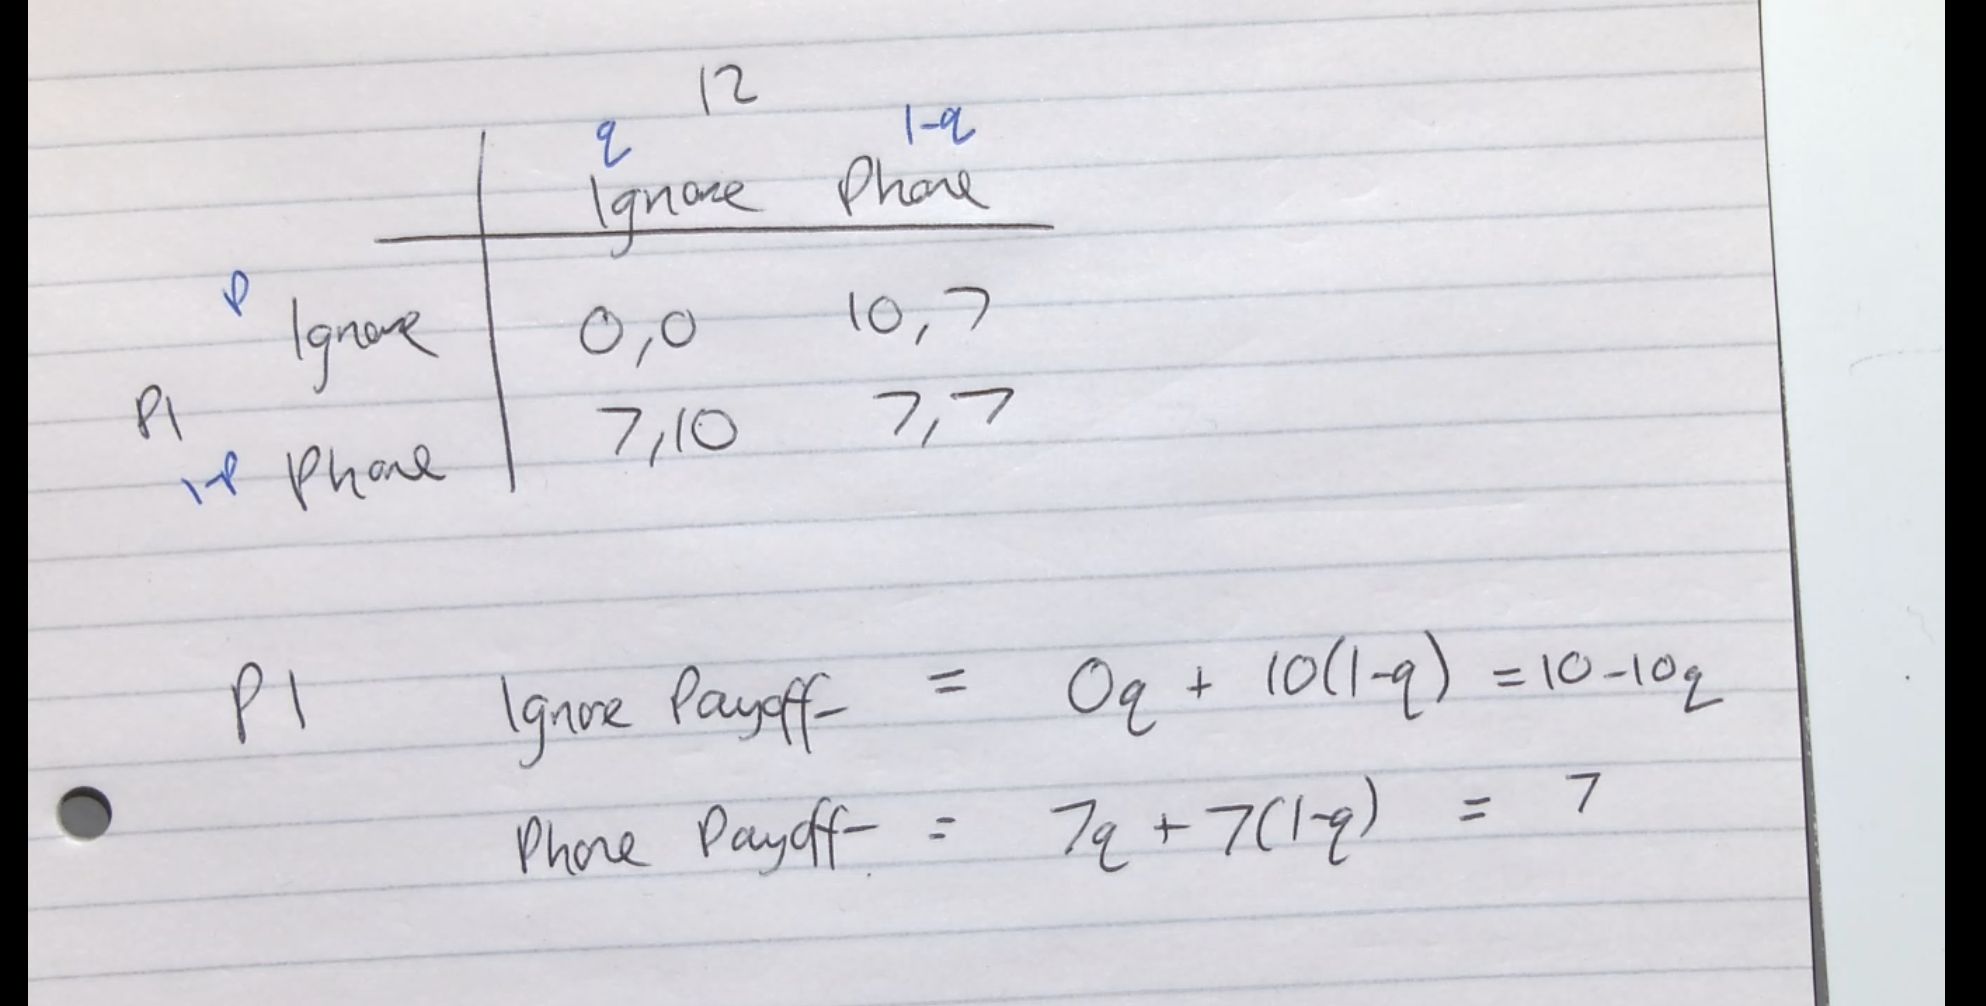 P2
q 1-q
Ignore Phone
P Ignore 0,0 10,7
P1
1-P Phone 7,10 7,7
P1 Ignore Payoff = 0q + 10(1-q) = 10-10q
Phone Payoff = 7q + 7(1-q) = 7